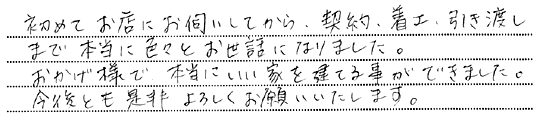 初めてお店にお伺いしてから、契約、着工、引き渡し
まで本当に色々とお世話になりました。
おかげ様で本当にいい家を建てる事ができました。
今後とも是非よろしくお願いいたします。